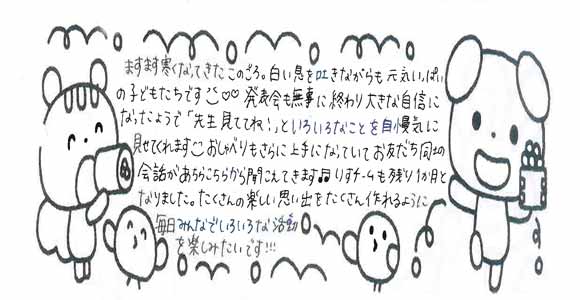 ますます寒くなってきたこのごろ。白い息を吐きながらも元気いっぱい
の子どもたちです♡♡ 発表会も無事に終わり大きな自信に
なったようで「先生見ててね!」といろいろなことを自慢気に
見せてくれます おしゃべりもさらに上手になっていてお友だち同士の
会話があちらこちらから聞こえてきます♫ りすチームも残り1か月と
なりました。たくさんの楽しい思い出をたくさん作れるように
毎日みんなでいろいろな活動
を楽しみたいです!!!